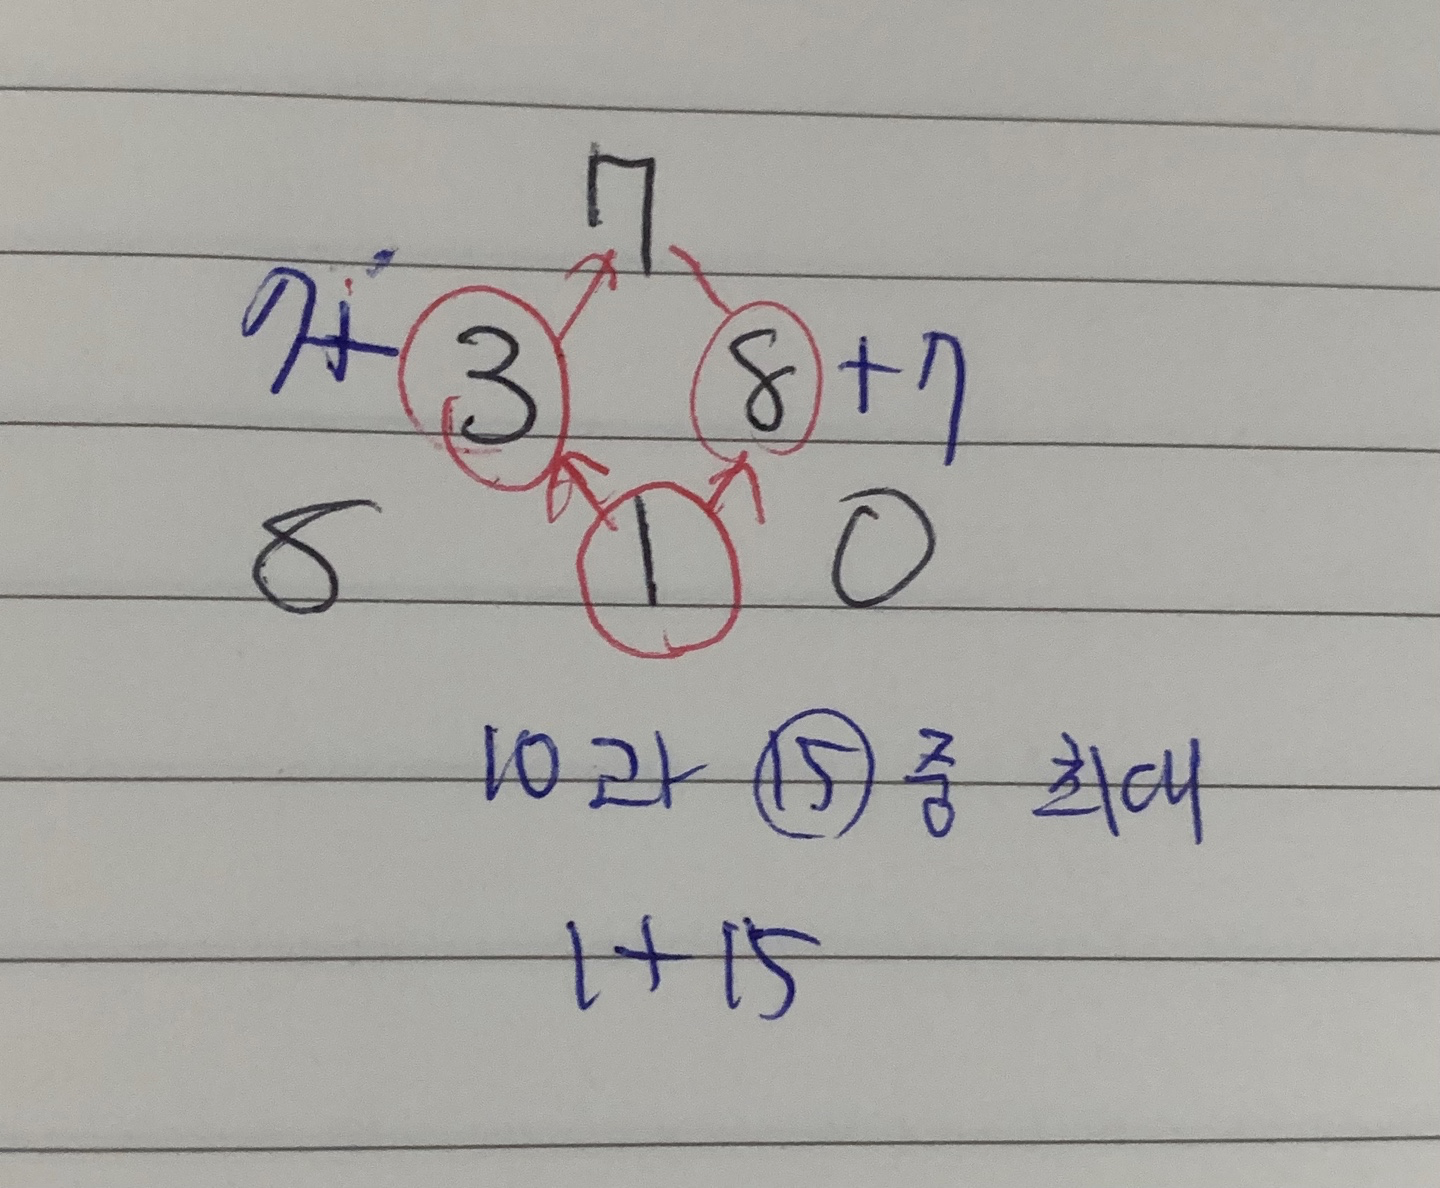 7
7+ 3 8 +7
8 1 0
10과 15 중 최대
1+15